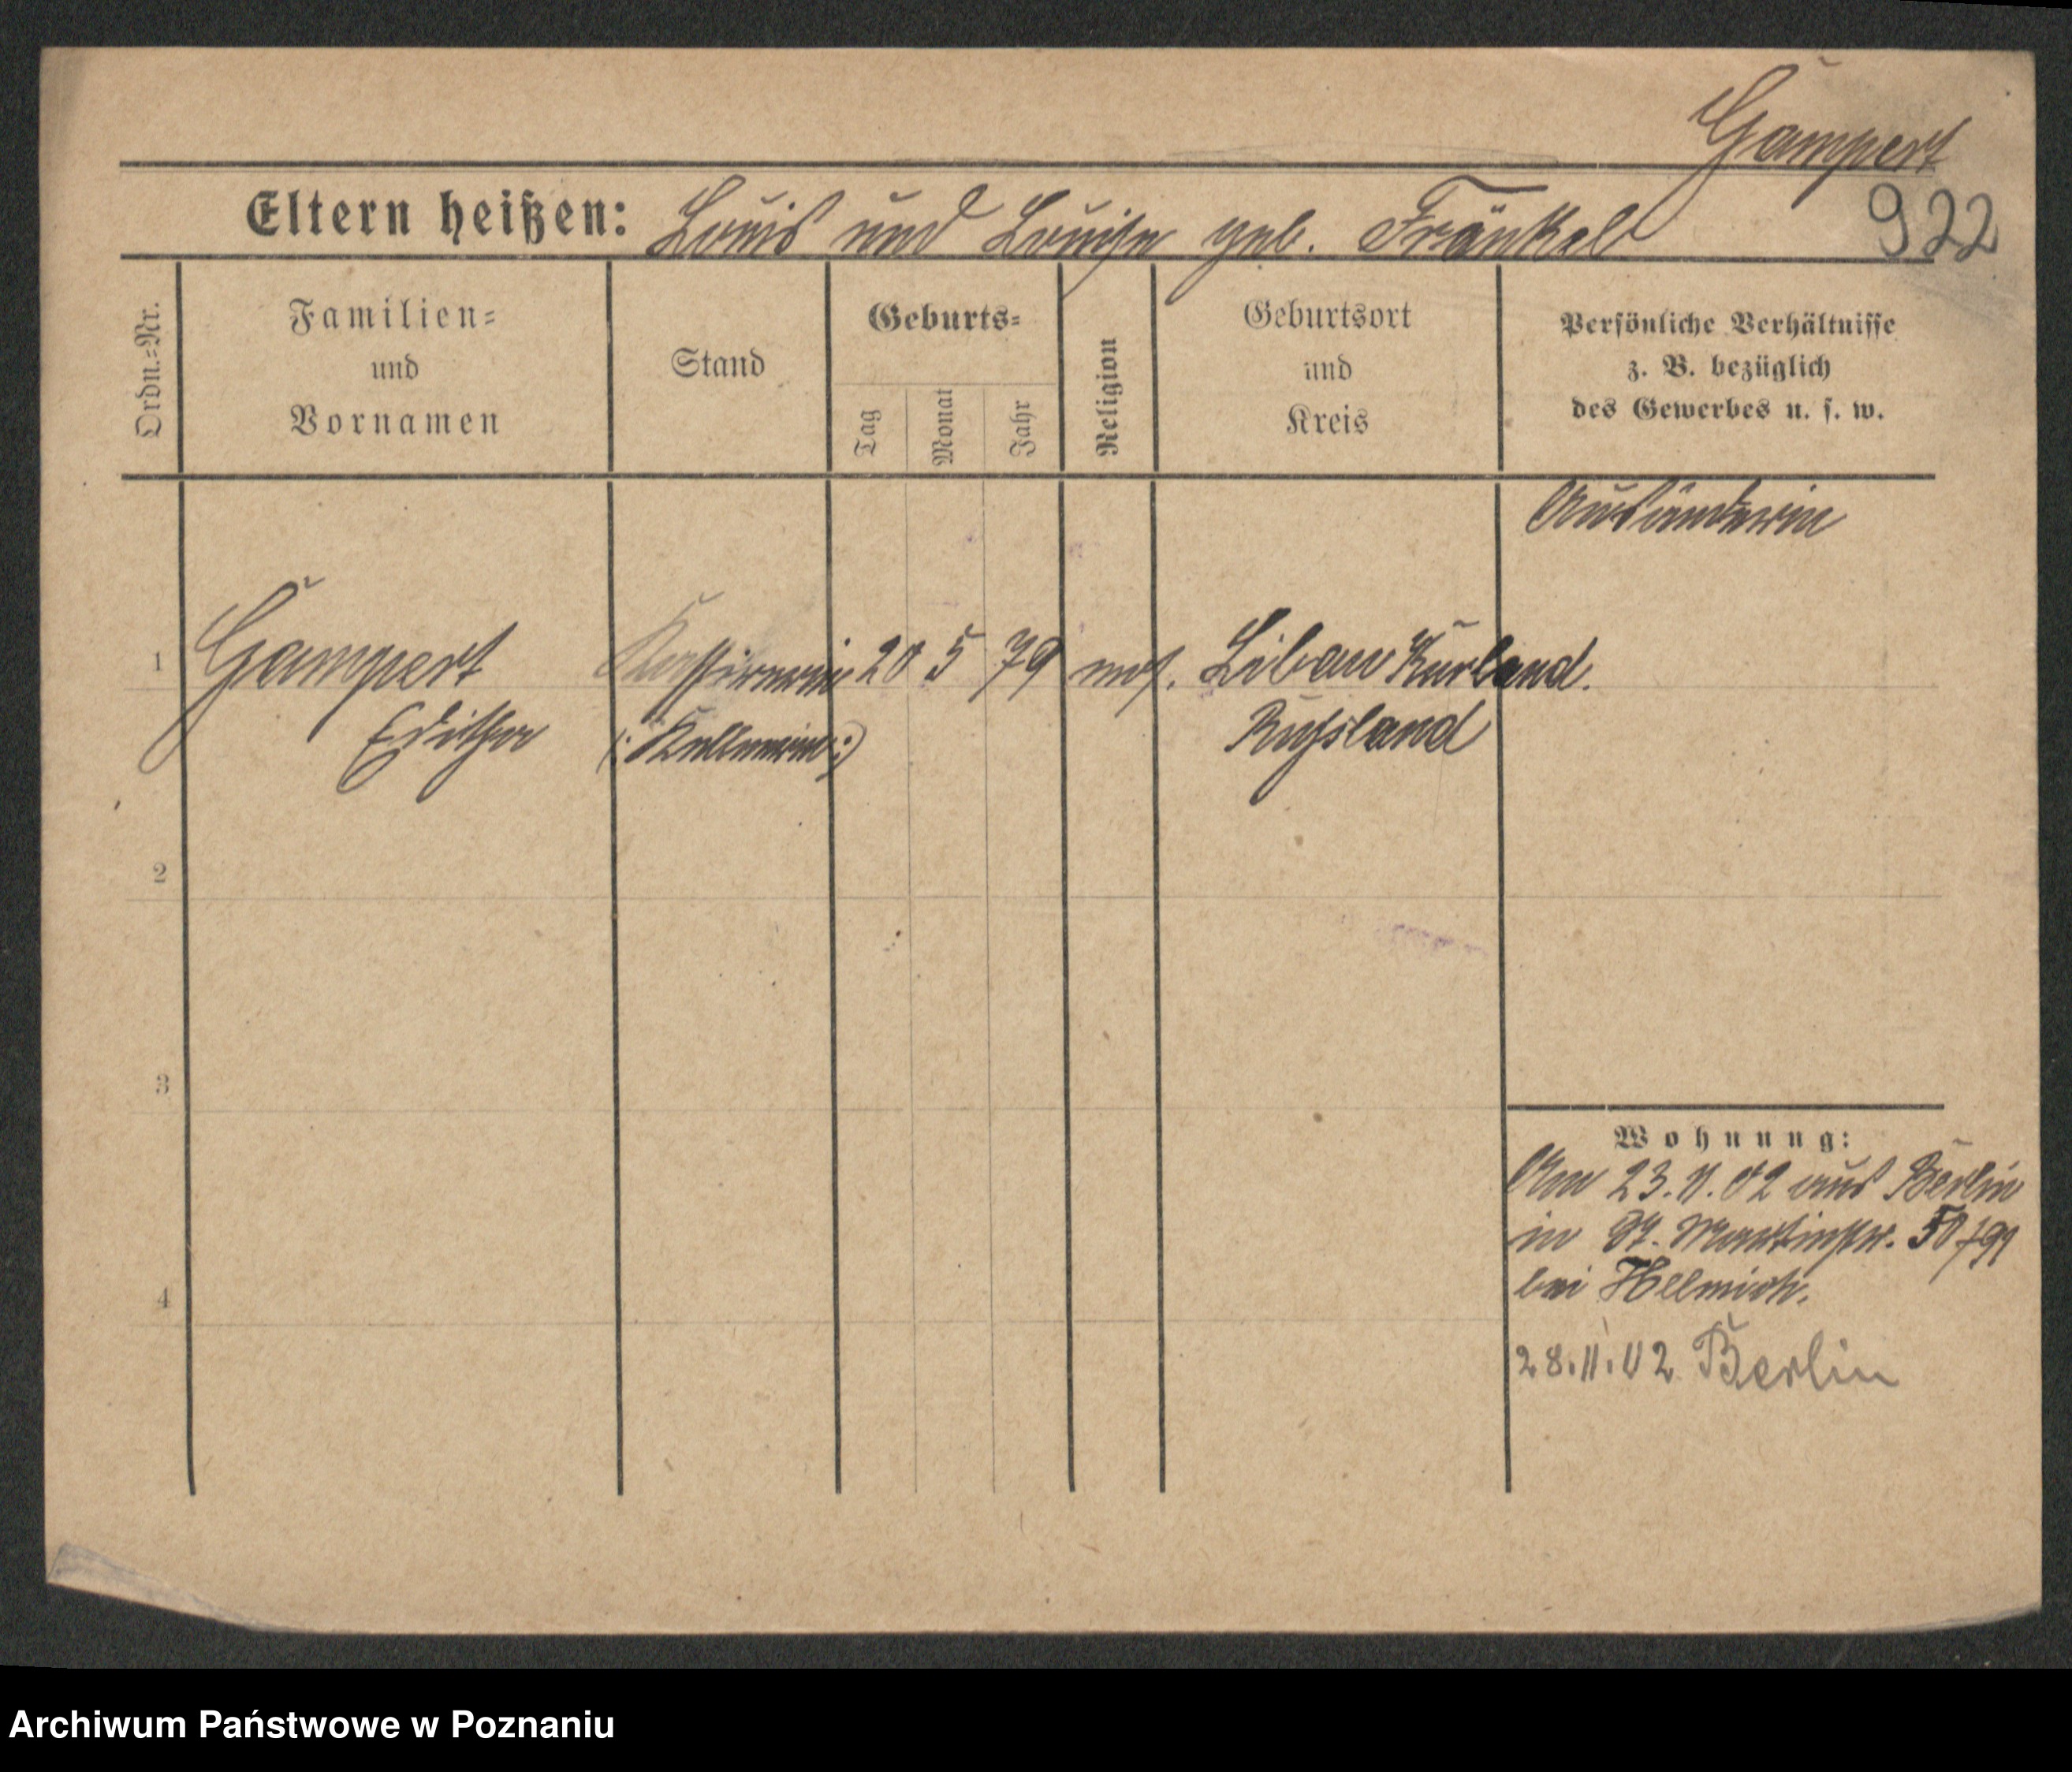 Gampert
Eltern heißen: Louis und Louise geb. Fränkel 922
Ordn.=Nr.
Familien=
und
Vornamen
Stand
Geburts=
Tag
Monat
Jahr
Religion
Geburtsort
und
Kreis
Persönliche Verhältnisse
z. B. bezüglich
des Gewerbes u. s. w.
Ausländerin
1 Gampert Kassirerin 20 5 79 mos. Libau Kurland.
Edithe (: Kellnerin :) Russland
2
3
4
Wohnung:
Am 23.11.02 aus Berlin
in St. Martinstr. 50/
bei Hellmich.
28.11.02 Berlin
Archiwum Państwowe w Poznaniu